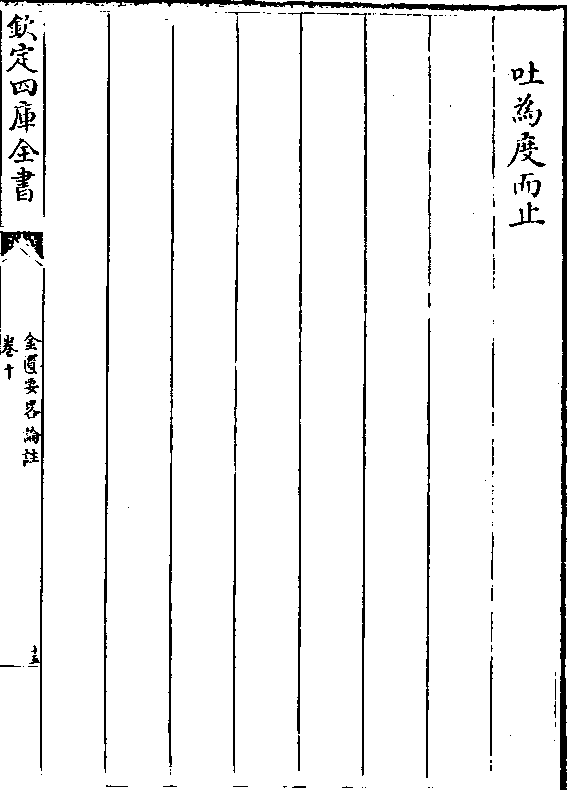 吐為度而止
欽定四庫全書
金匱要畧論註
卷十
十五